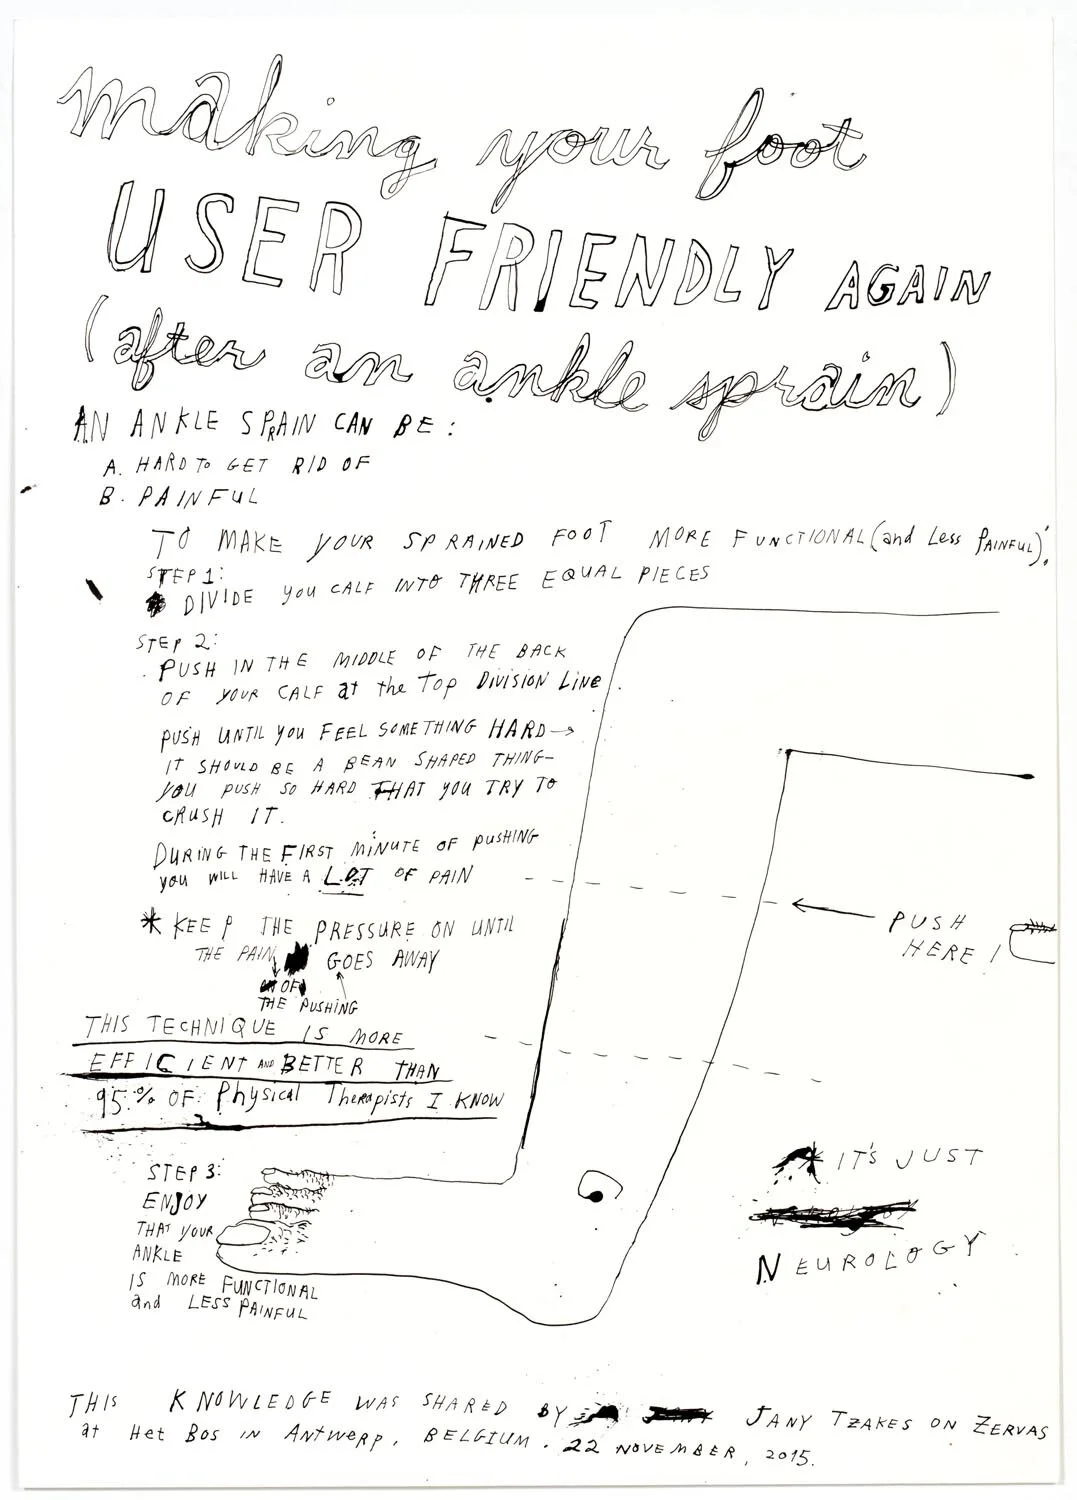 making your foot
USER FRIENDLY AGAIN
(after an ankle sprain)
AN ANKLE SPRAIN CAN BE:
A. HARD TO GET RID OF
B. PAINFUL
TO MAKE YOUR SPRAINED FOOT MORE FUNCTIONAL (and Less PAINFUL):
STEP 1:
DIVIDE you CALF INTO THREE EQUAL PIECES
STEP 2:
PUSH IN THE MIDDLE OF THE BACK
OF YOUR CALF at the Top DIVISION LINE.
PUSH UNTIL YOU FEEL SOMETHING HARD→
IT SHOULD BE A BEAN SHAPED THING-
YOU PUSH SO HARD THAT YOU TRY TO
CRUSH IT.
DURING THE FIRST MINUTE OF PUSHING
YOU WILL HAVE A LOT OF PAIN
* KEEP THE PRESSURE ON UNTIL
THE PAIN GOES AWAY
OF
THE PUSHING
PUSH
HERE!
THIS TECHNIQUE IS MORE
EFFICIENT AND BETTER THAN
95% OF Physical Therapists I KNOW
STEP 3:
ENJOY
THAT YOUR
ANKLE
IS MORE FUNCTIONAL
and LESS PAINFUL
* IT'S JUST
NEUROLOGY
THIS KNOWLEDGE WAS SHARED BY JANY TZAKES ON ZERVAS
at Het Bos IN ANTWERP, BELGIUM. 22 NOVEMBER, 2015.